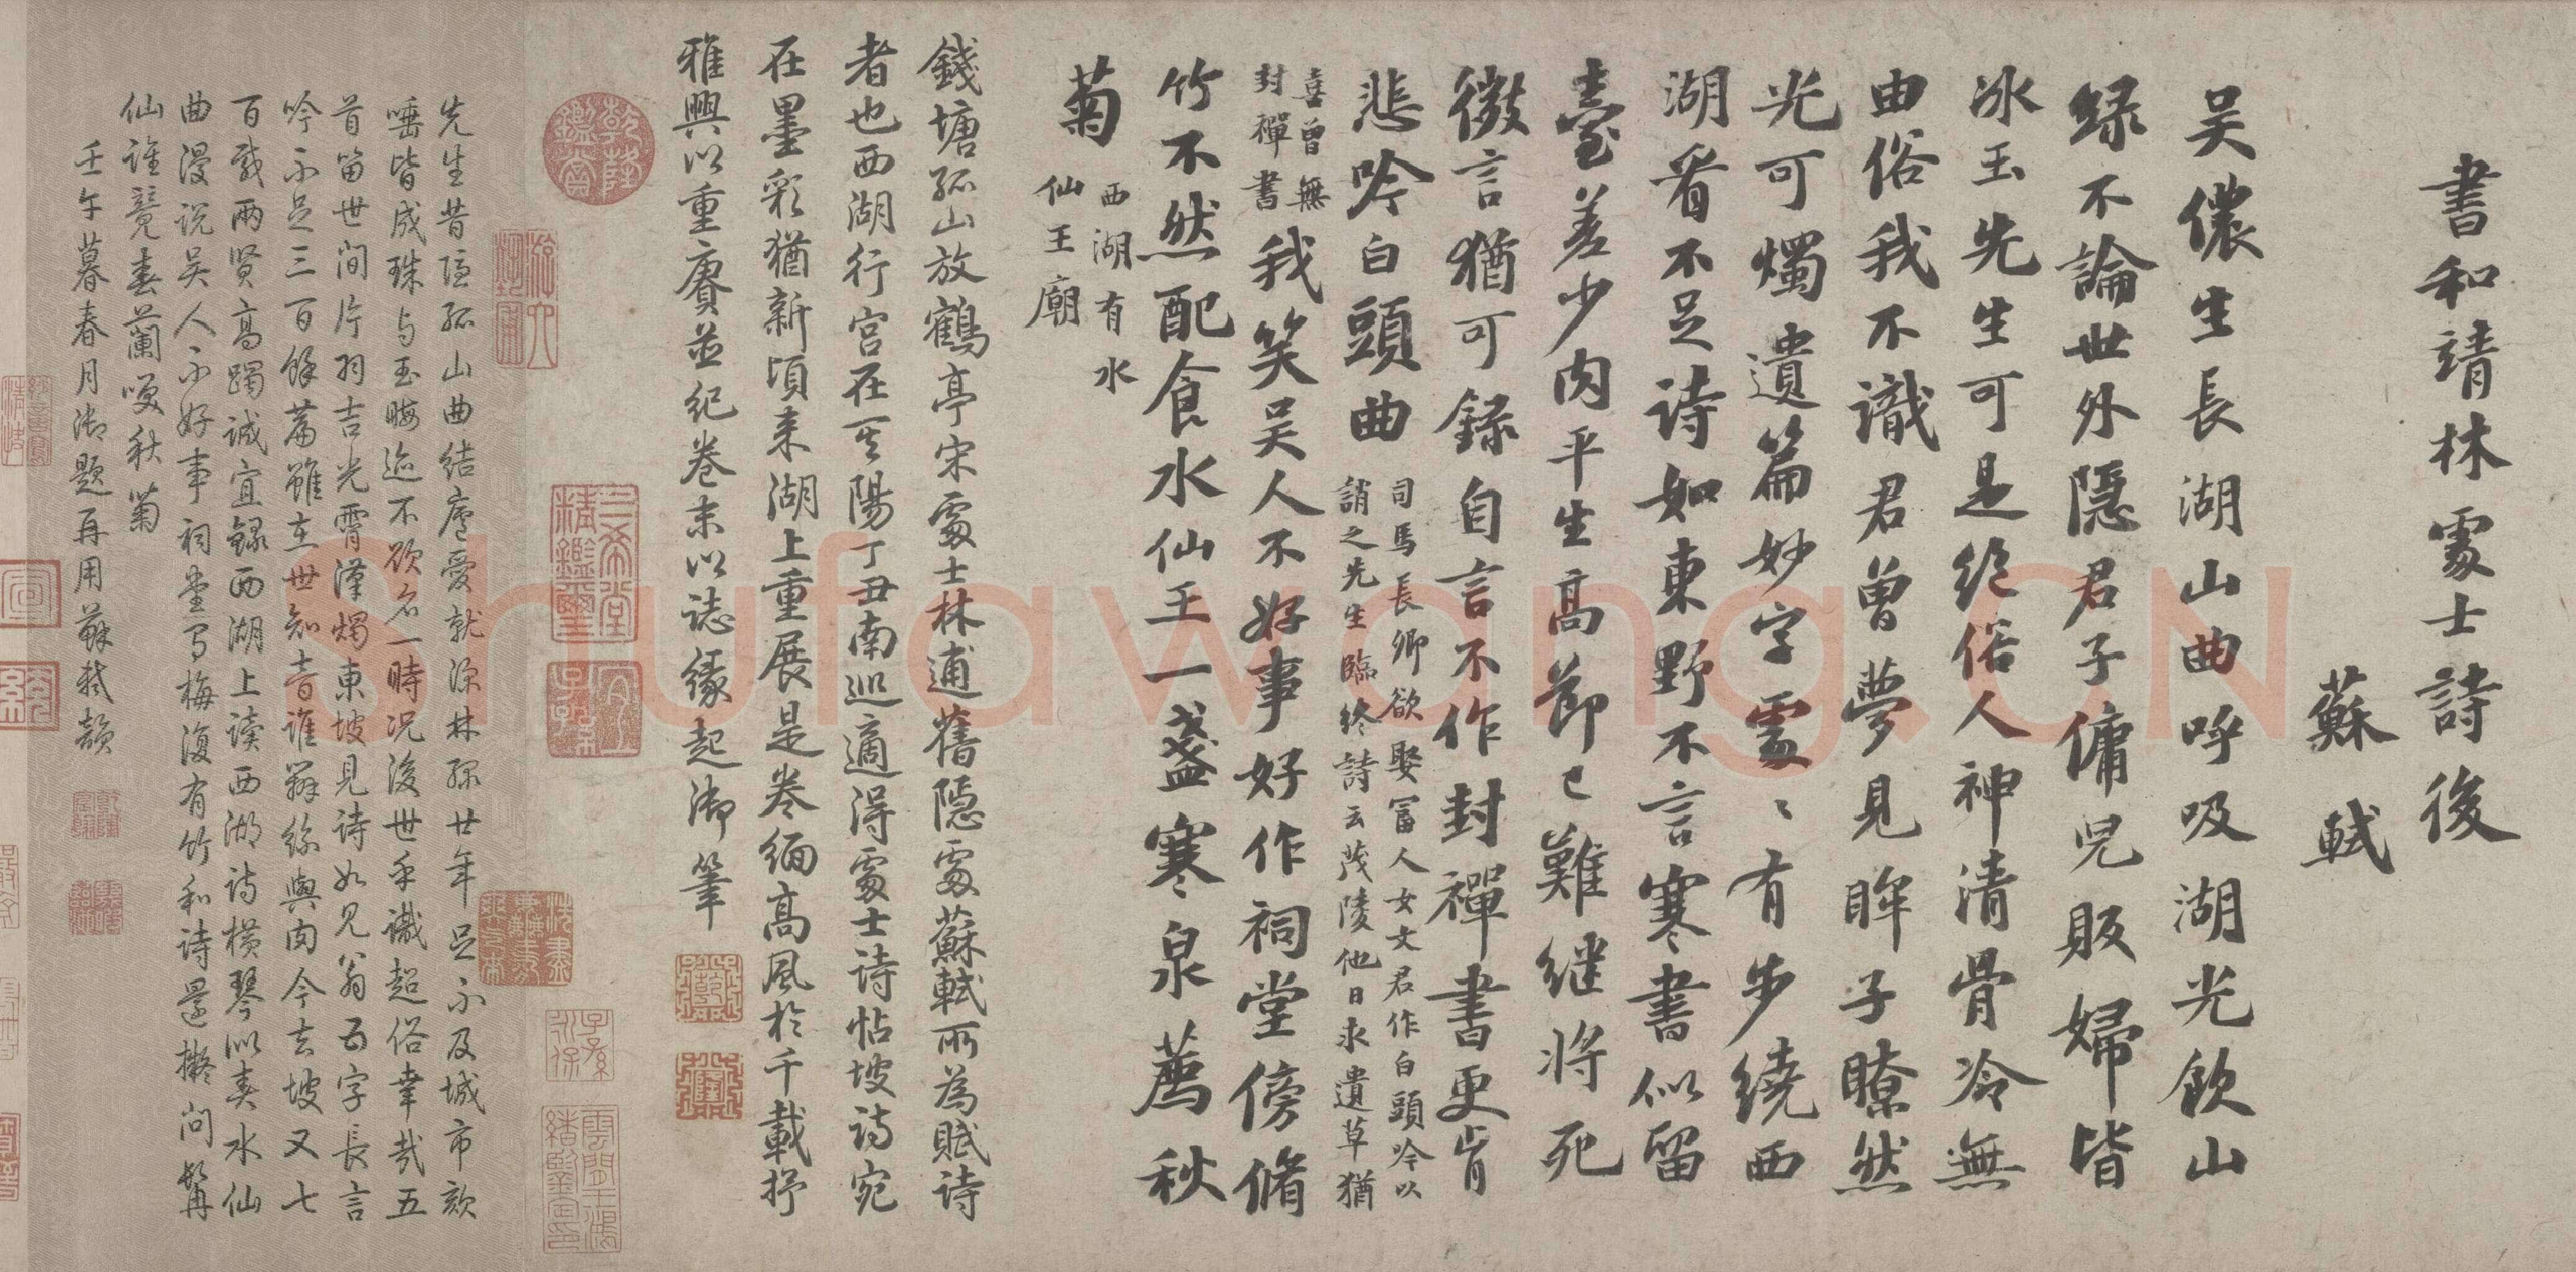 書和靖林處士詩後
蘇軾
吴儂生長湖山曲呼吸湖光飲山
緑不論世外隱君子傭兒販婦皆
冰玉先生可是絶俗人神清骨冷無
由俗我不識君曾夢見眸子瞭然
光可燭遺篇妙字處〻有步繞西
湖看不足詩如東野不言寒書似留
臺差少肉平生高節已難繼將死
微言猶可録自言不作封禪書更肯
悲吟白頭曲
司馬長卿欲娶富人女文君作白頭吟以
誚之先生臨終詩云茂陵他日求遺草猶
喜曾無
封禪書
我笑吴人不好事好作祠堂傍脩
竹不然配食水仙王一盞寒泉薦秋
菊
西湖有水
仙王廟
錢塘孤山放鶴亭宋處士林逋舊隱處蘇軾所為賦詩
者也西湖行宫在其陽丁丑南巡適得處士詩帖坡詩宛
在墨彩猶新頃来湖上重展是卷緬高風於千載抒
雅興以重賡並紀卷末以誌緣起御筆
先生昔隱孤山曲結廬愛就深林緑廿年足不及城市欬
唾皆成珠与玉晦迹不欲名一時况後世乎譏超俗幸哉五
首留世間片羽吉光霄漢燭東坡見詩如見翁五字長言
吟不足三百餘篇雖在世知音誰辨絲與肉今去坡又七
百載兩賢高躅誠宜録西湖上讀西湖詩横琴似奏水仙
曲漫説吴人不好事祠堂寫梅復有竹和詩還擬問髯
仙誰薦春蘭嗅秋菊
壬午暮春月御題再用蘇軾韻
乾隆鑑賞
三希堂精鑑璽
宜子孫
shufawang.CN